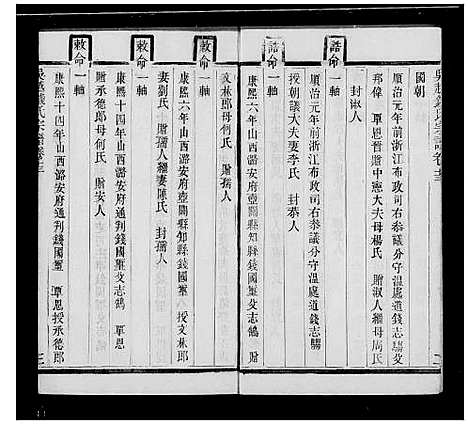 吳越錢氏宗譜卷十三
國朝
順治元年前浙江布政司右叅議分守溫處道錢志騶
邦偉 覃恩晉贈中憲大夫母楊氏 贈淑人繼母周氏
封淑人
誥命一軸
順治元年前浙江布政司右叅議分守溫處道錢志騶
授朝議大夫妻李氏 封恭人
誥命一軸
康熙六年山西潞安府壺關縣知縣錢國璽父志鵠 贈
文林郎母何氏 贈孺人
敕命一軸
康熙六年山西潞安府壺關縣知縣錢國璽 授文林郎
妻劉氏 贈孺人繼妻陳氏 封孺人
敕命一軸
康熙十四年山西潞安府通判錢國璽父志鵠 覃恩
贈承德郎母何氏 贈安人
敕命一軸
康熙十四年山西潞安府通判錢國璽 覃恩授承德郎
吳越錢氏宗譜卷十三
三